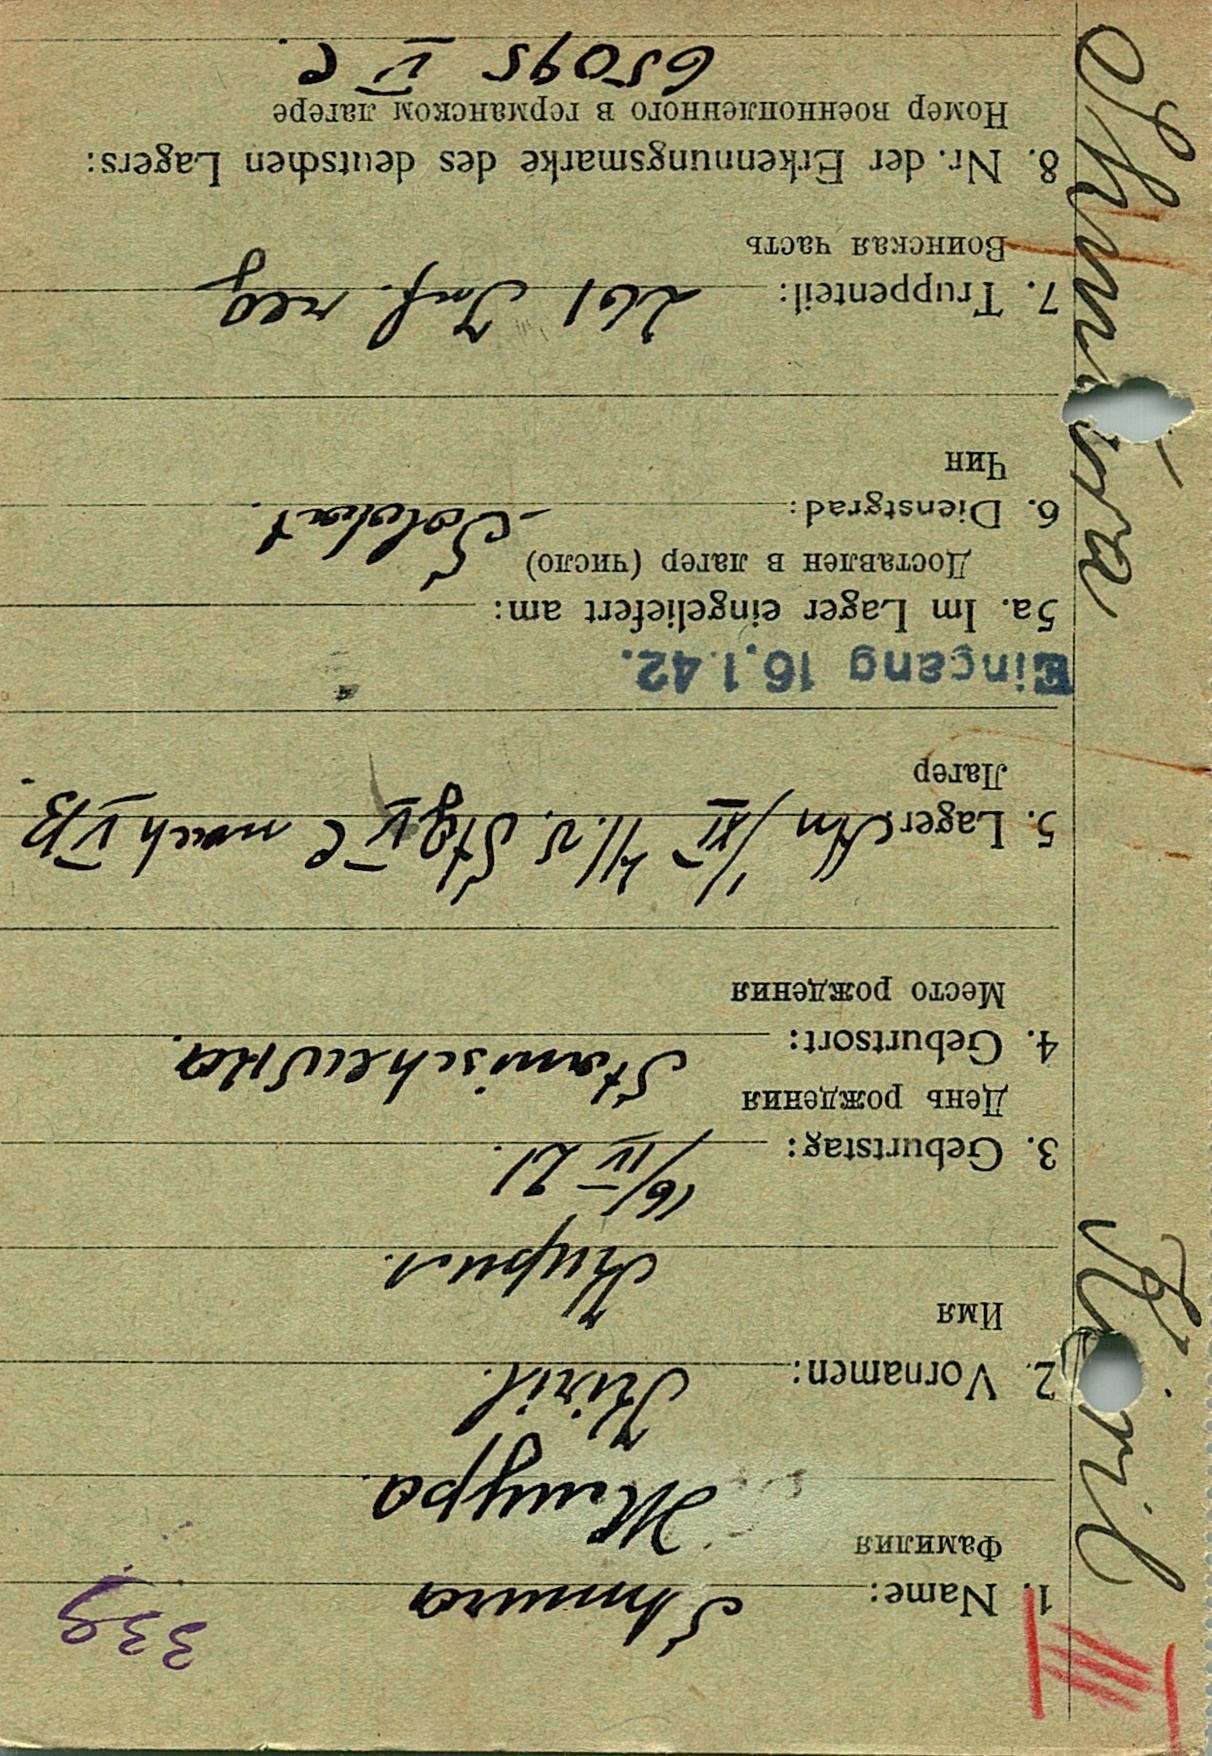 339
III
1. Name: Shmura
Фамилия
Жмура
2. Vornamen: Kiril.
Имя
Кирил.
3. Geburtstag: 16/IV 21.
День рождения
4. Geburtsort: Stanischewka.
Место рождения
5. Lager: An 1/XI 41. v. Stg V C nach V B.
Лагер
Eingang 16.1.42.
5a. Im Lager eingeliefert am:
Доставлен в лагер (число)
6. Dienstgrad: Soldat.
Чин
7. Truppenteil: 261 Inf. reg
Воинская часть
8. Nr. der Erkennungsmarke des deutschen Lagers:
Номер военнопленного в германском лагере
65095 V C.
Kiril